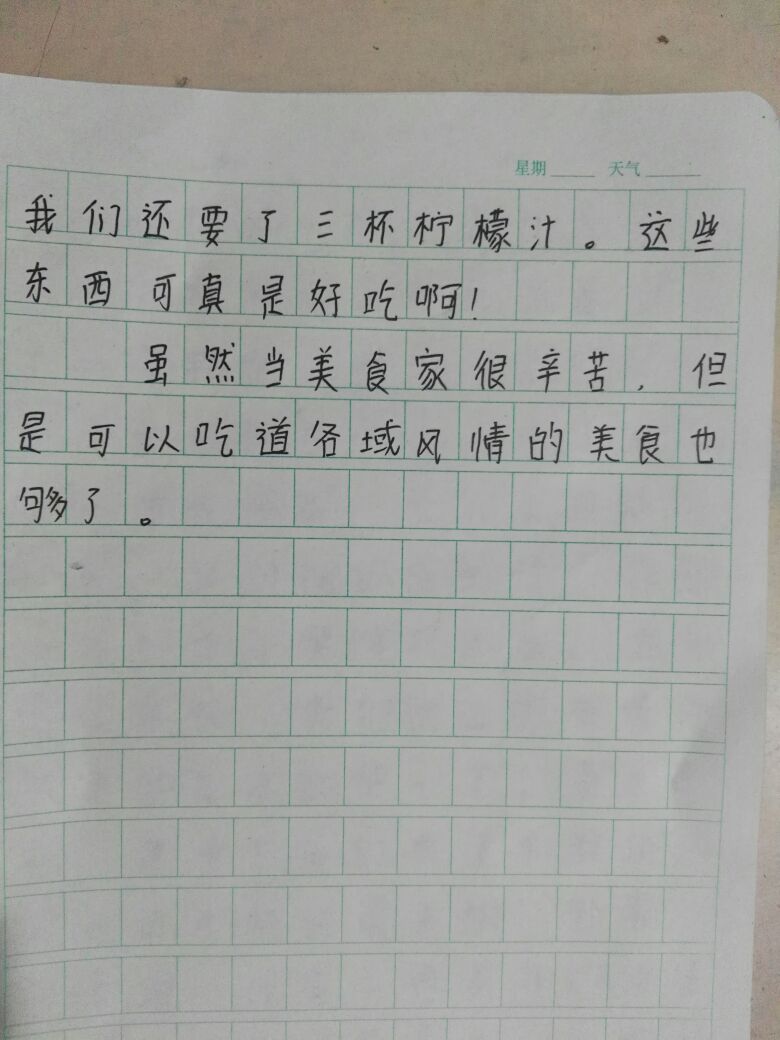 星期 天气
我们还要了三杯柠檬汁。这些
东西可真是好吃啊！
虽然当美食家很辛苦，但
是可以吃道各域风情的美食也
够了。